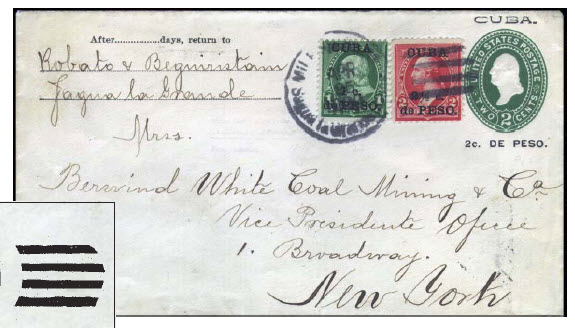 CUBA.
After..............days, return to
Robato & Beguiristain
Sagua la Grande
Mrss.
Berwind White Coal Mining & Co
Vice Presidente Office
1. Broadway.
New York
CUBA.
de PESO.
CUBA.
de PESO.
UNITED STATES POSTAGE
TWO 2 CENTS
2c. DE PESO.